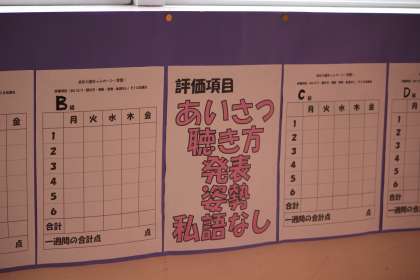 金
点
B組
月 火 水 木 金
1
2
3
4
5
6
合計
一週間の合計点 点
評価項目
あいさつ
聴き方
発表
姿勢
私語なし
C組
月 火 水 木 金
1
2
3
4
5
6
合計
一週間の合計点 点
D
月
1
2
3
4
5
6
合計
一週